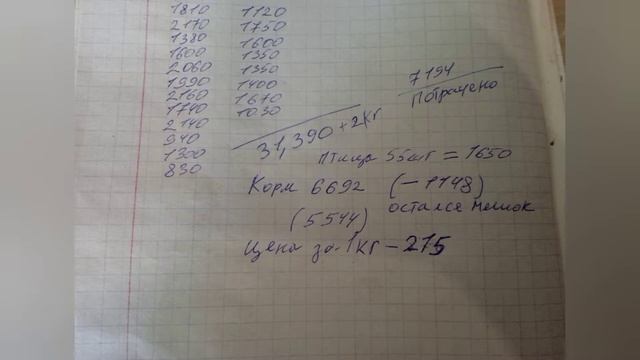 1810
2170
1380
1600
2060
1990
2160
1740
2140
940
1300
830
1120
1750
1600
1350
1350
1400
1670
1030
31,390 + 2кг
7194
Потрачено
птица 55шт = 1650
Корм 6692 (-1148)
остался мешок
(5544)
Цена за 1кг - 215